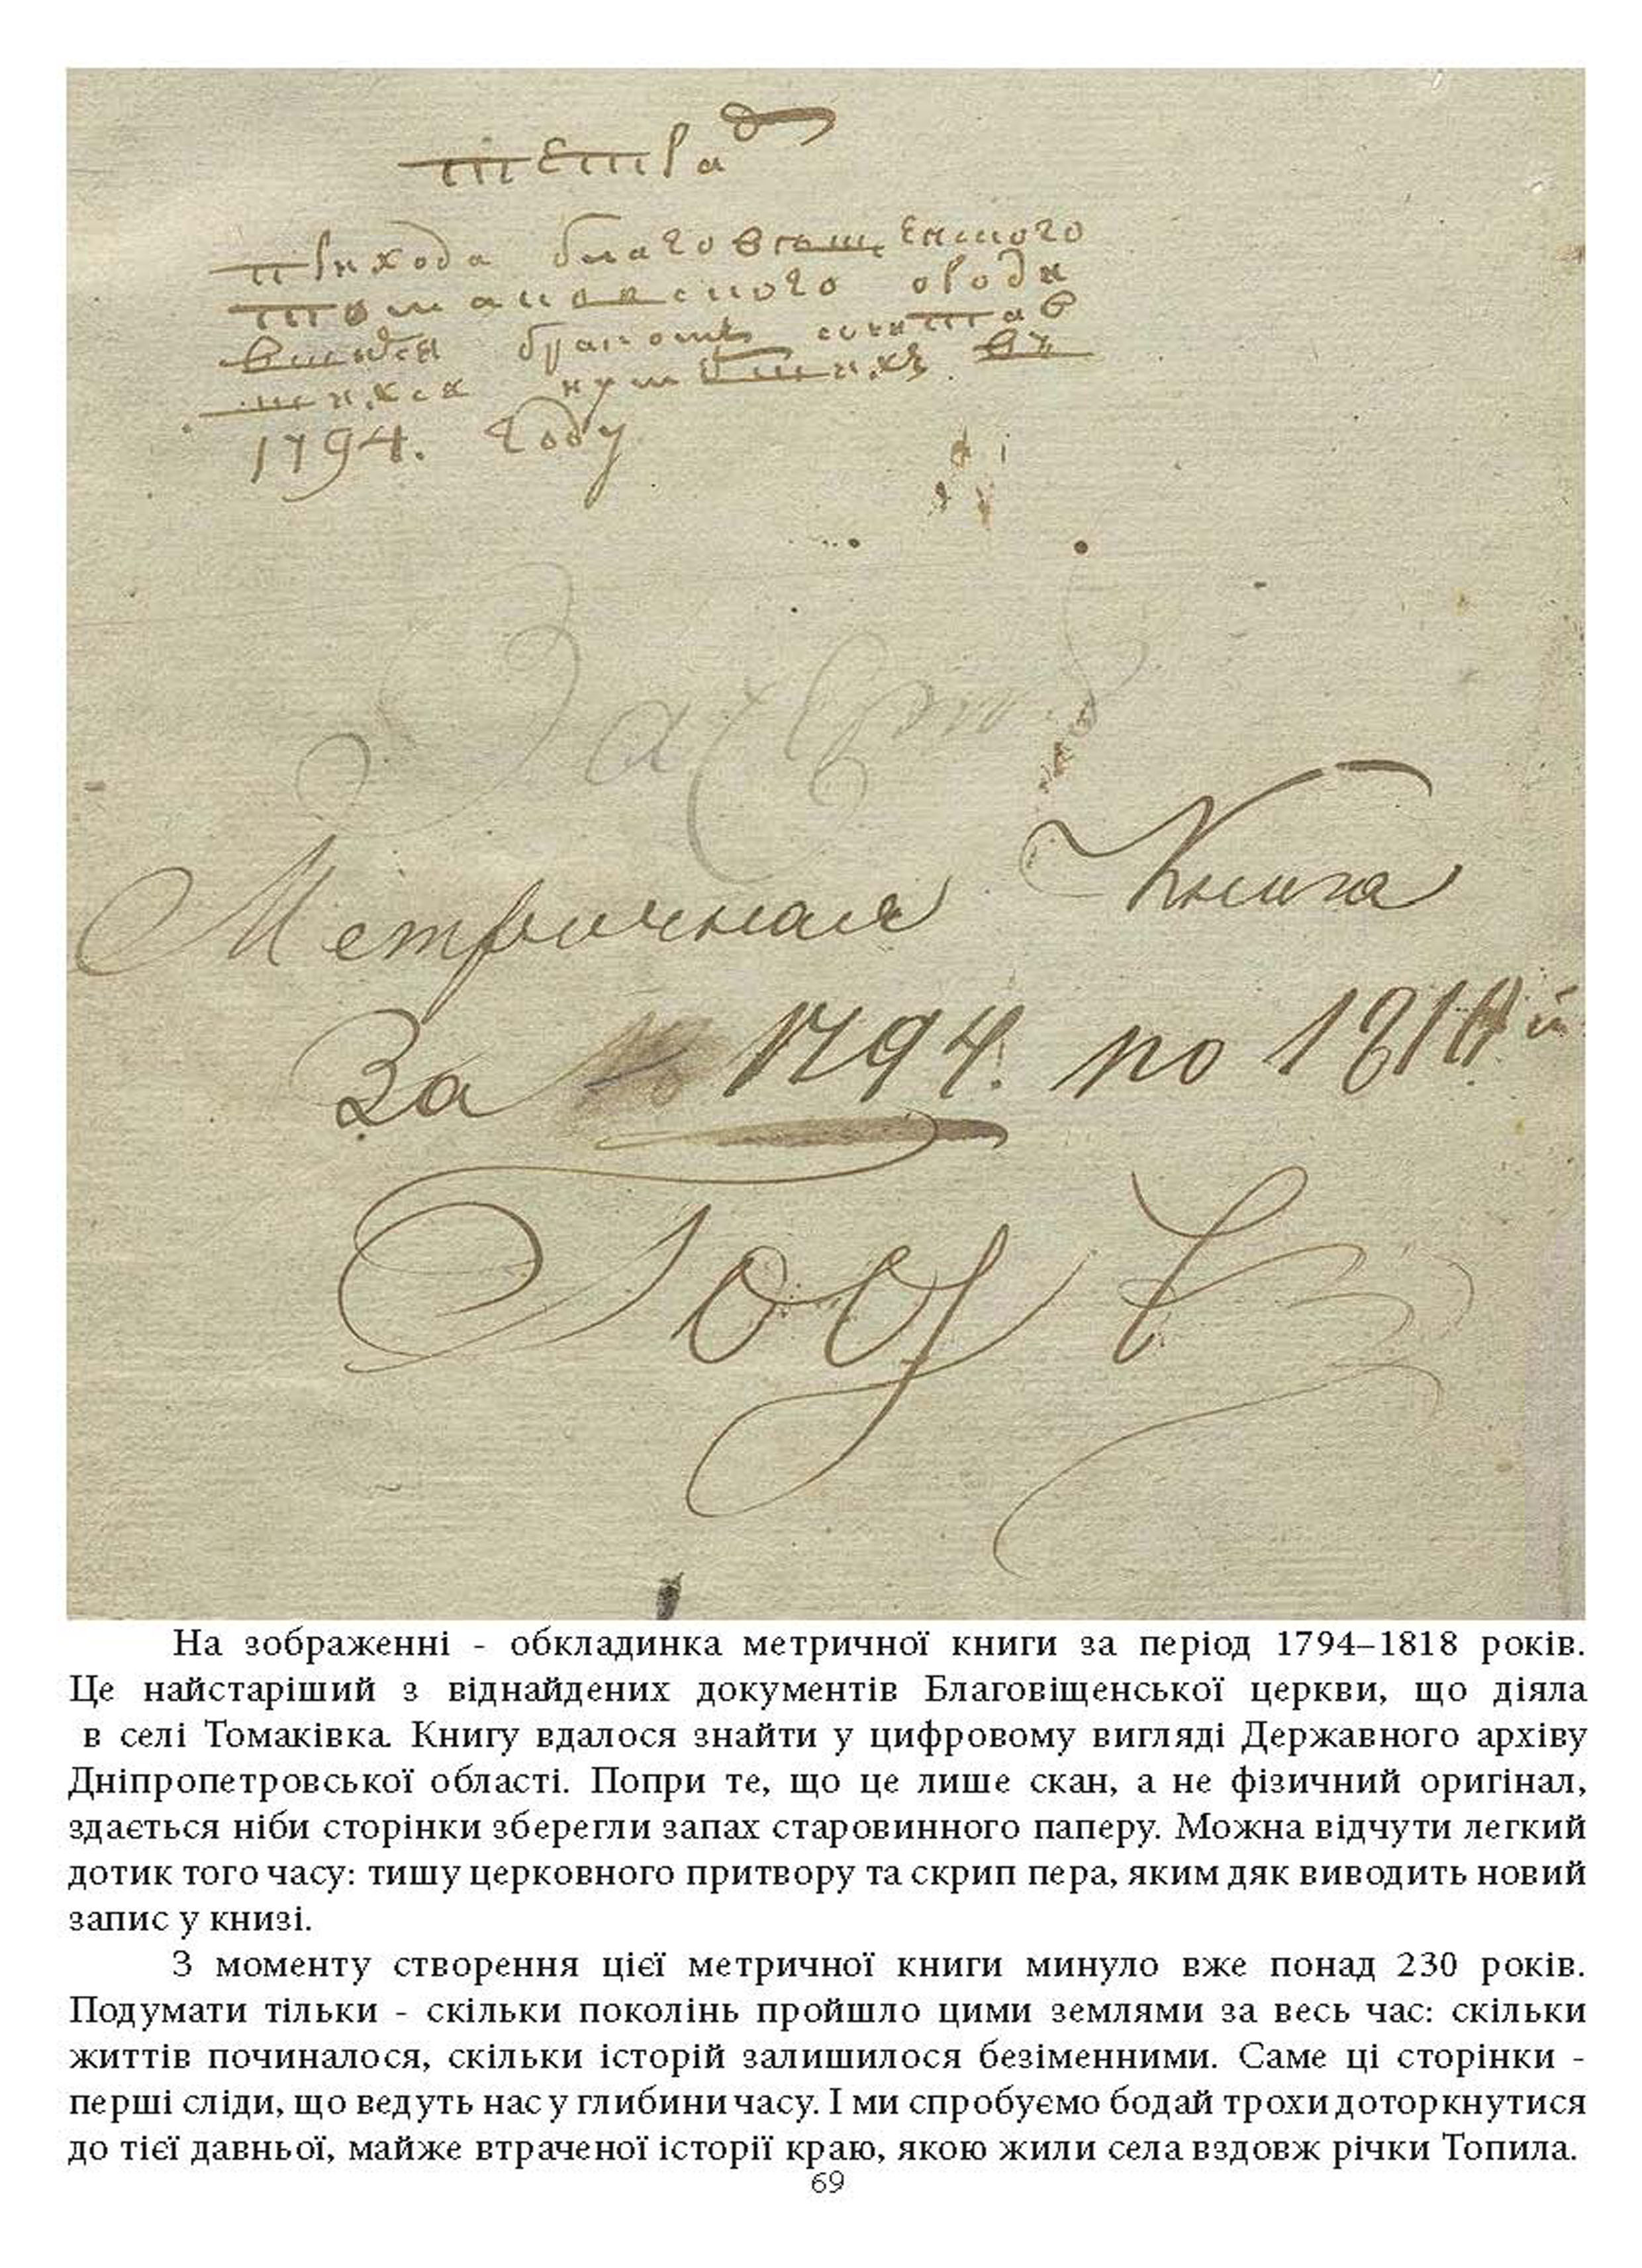 тетрад
прихода благовѣщенского
томаковского о роди
вшихся бракомъ сочетав
шихся и умершихъ въ
1794. году
Метричная Книга
За 1794. по 1818й
Годъ
На зображенні - обкладинка метричної книги за період 1794–1818 років.
Це найстаріший з віднайдених документів Благовіщенської церкви, що діяла
в селі Томаківка. Книгу вдалося знайти у цифровому вигляді Державного архіву
Дніпропетровської області. Попри те, що це лише скан, а не фізичний оригінал,
здається ніби сторінки зберегли запах старовинного паперу. Можна відчути легкий
дотик того часу: тишу церковного притвору та скрип пера, яким дяк виводить новий
запис у книзі.
З моменту створення цієї метричної книги минуло вже понад 230 років.
Подумати тільки - скільки поколінь пройшло цими землями за весь час: скільки
життів починалося, скільки історій залишилося безіменними. Саме ці сторінки -
перші сліди, що ведуть нас у глибини часу. І ми спробуємо бодай трохи доторкнутися
до тієї давньої, майже втраченої історії краю, якою жили села вздовж річки Топила.
69